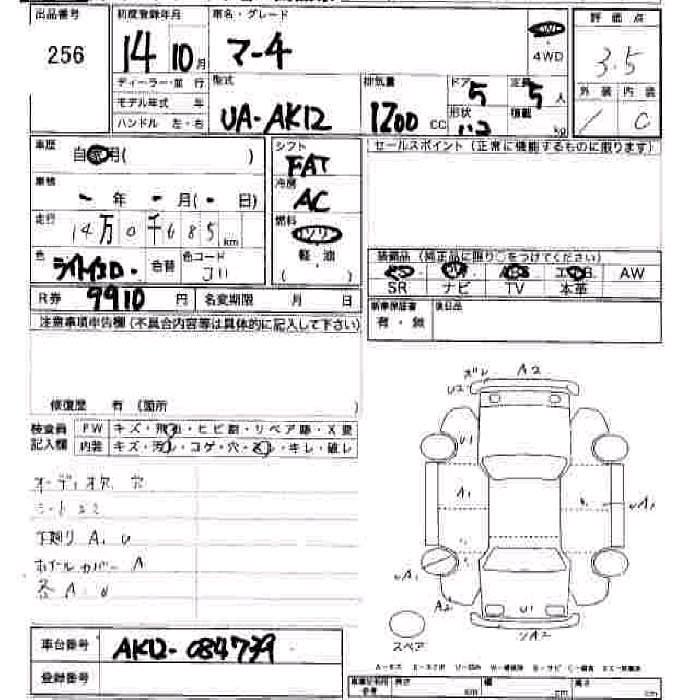 出品番号 初度登録年月 車名・グレード 評価点
256 14 10月 マーチ 4WD 3.5
ディーラー・並行 型式 排気量 ドア 5 定員 5人 外装 内装
モデル年式 年 UA-AK12 1200cc 形状 積載 kg / C
ハンドル 左・右
車歴 シフト セールスポイント (正常に機能するものに限ります)
自家用( ) FAT
車検 冷房
年 月( 日) AC
走行 燃料
14万0千685km ガソリン
色 色替 色コード 軽・油 装備品 (純正品に限り○をつけてください)
ライトイエロー J11 ( ) PS PW ABS エアB. AW
R券 9910円 名変期限 月 日 SR ナビ TV 本革
注意事項申告欄 (不具合内容等は具体的に記入して下さい) 新車保証書 後日品
有・無
修復歴 有 (箇所 )
検査員 FW キズ・飛石・ヒビ割・リペア跡・X要
記入欄 内装 キズ・汚レ・コゲ・穴・スレ・キレ・破レ
オーディオ欠 穴
シートスミ
下廻り A. U
ホイールカバー A
各 A. U
A2
U2
U1
A1
A1
A1
A2
U1
A2
スペア
車台番号 AK12-084739
登録番号